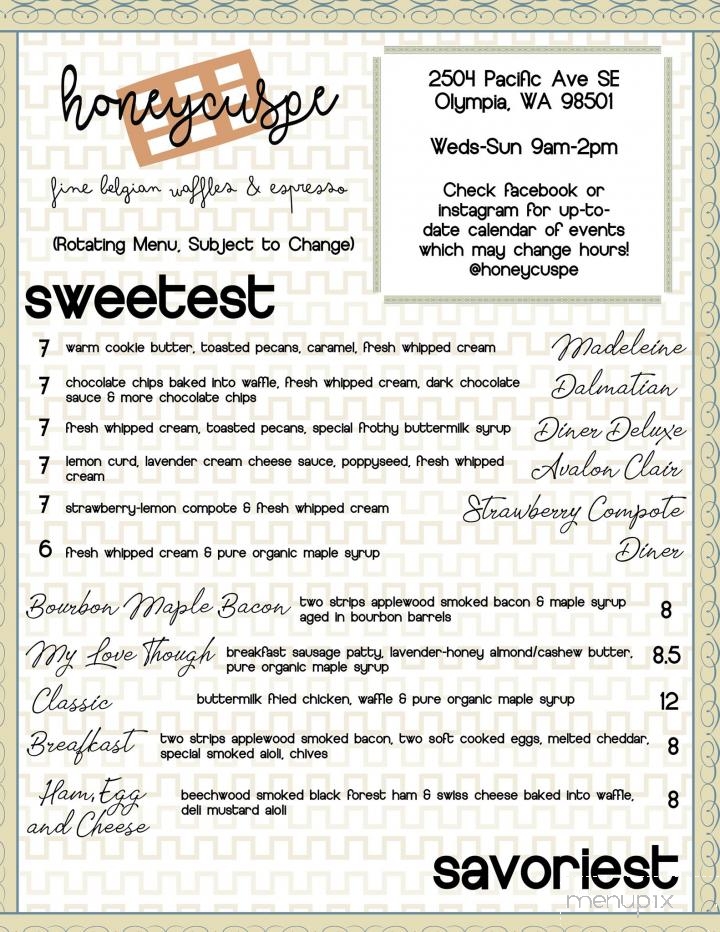 honeycuspe
fine belgian waffles & espresso
(Rotating Menu, Subject to Change)
2504 Pacific Ave SE
Olympia, WA 98501
Weds-Sun 9am-2pm
Check facebook or
instagram for up-to-
date calendar of events
which may change hours!
@honeycuspe
sweetest
7 warm cookie butter, toasted pecans, caramel, fresh whipped cream Madeleine
7 chocolate chips baked into waffle, fresh whipped cream, dark chocolate
sauce & more chocolate chips Dalmatian
7 fresh whipped cream, toasted pecans, special frothy buttermilk syrup Diner Deluxe
7 lemon curd, lavender cream cheese sauce, poppyseed, fresh whipped
cream Avalon Clair
7 strawberry-lemon compote & fresh whipped cream Strawberry Compote
6 fresh whipped cream & pure organic maple syrup Diner
Bourbon Maple Bacon two strips applewood smoked bacon & maple syrup
aged in bourbon barrels 8
My Love Though breakfast sausage patty, lavender-honey almond/cashew butter,
pure organic maple syrup 8.5
Classic buttermilk fried chicken, waffle & pure organic maple syrup 12
Breafkast two strips applewood smoked bacon, two soft cooked eggs, melted cheddar,
special smoked aioli, chives 8
Ham, Egg
and Cheese beechwood smoked black forest ham & swiss cheese baked into waffle,
deli mustard aioli 8
savoriest
menupix